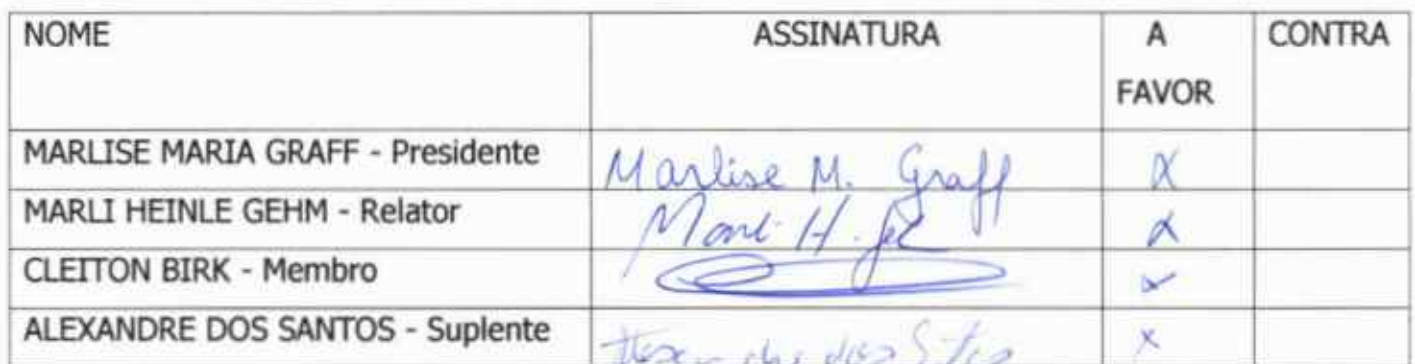 NOME ASSINATURA A FAVOR CONTRA
MARLISE MARIA GRAFF - Presidente Marlise M. Graff X
MARLI HEINLE GEHM - Relator H. X
CLEITON BIRK - Membro X
ALEXANDRE DOS SANTOS - Suplente dos X